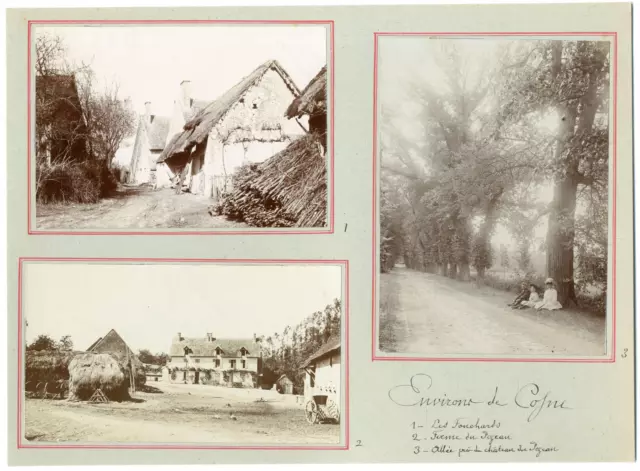 1
2
3
Environs de Cosne
1 - Les Fouchards
2 - Ferme du Pezeau
3 - Allée près du château du Pezeau